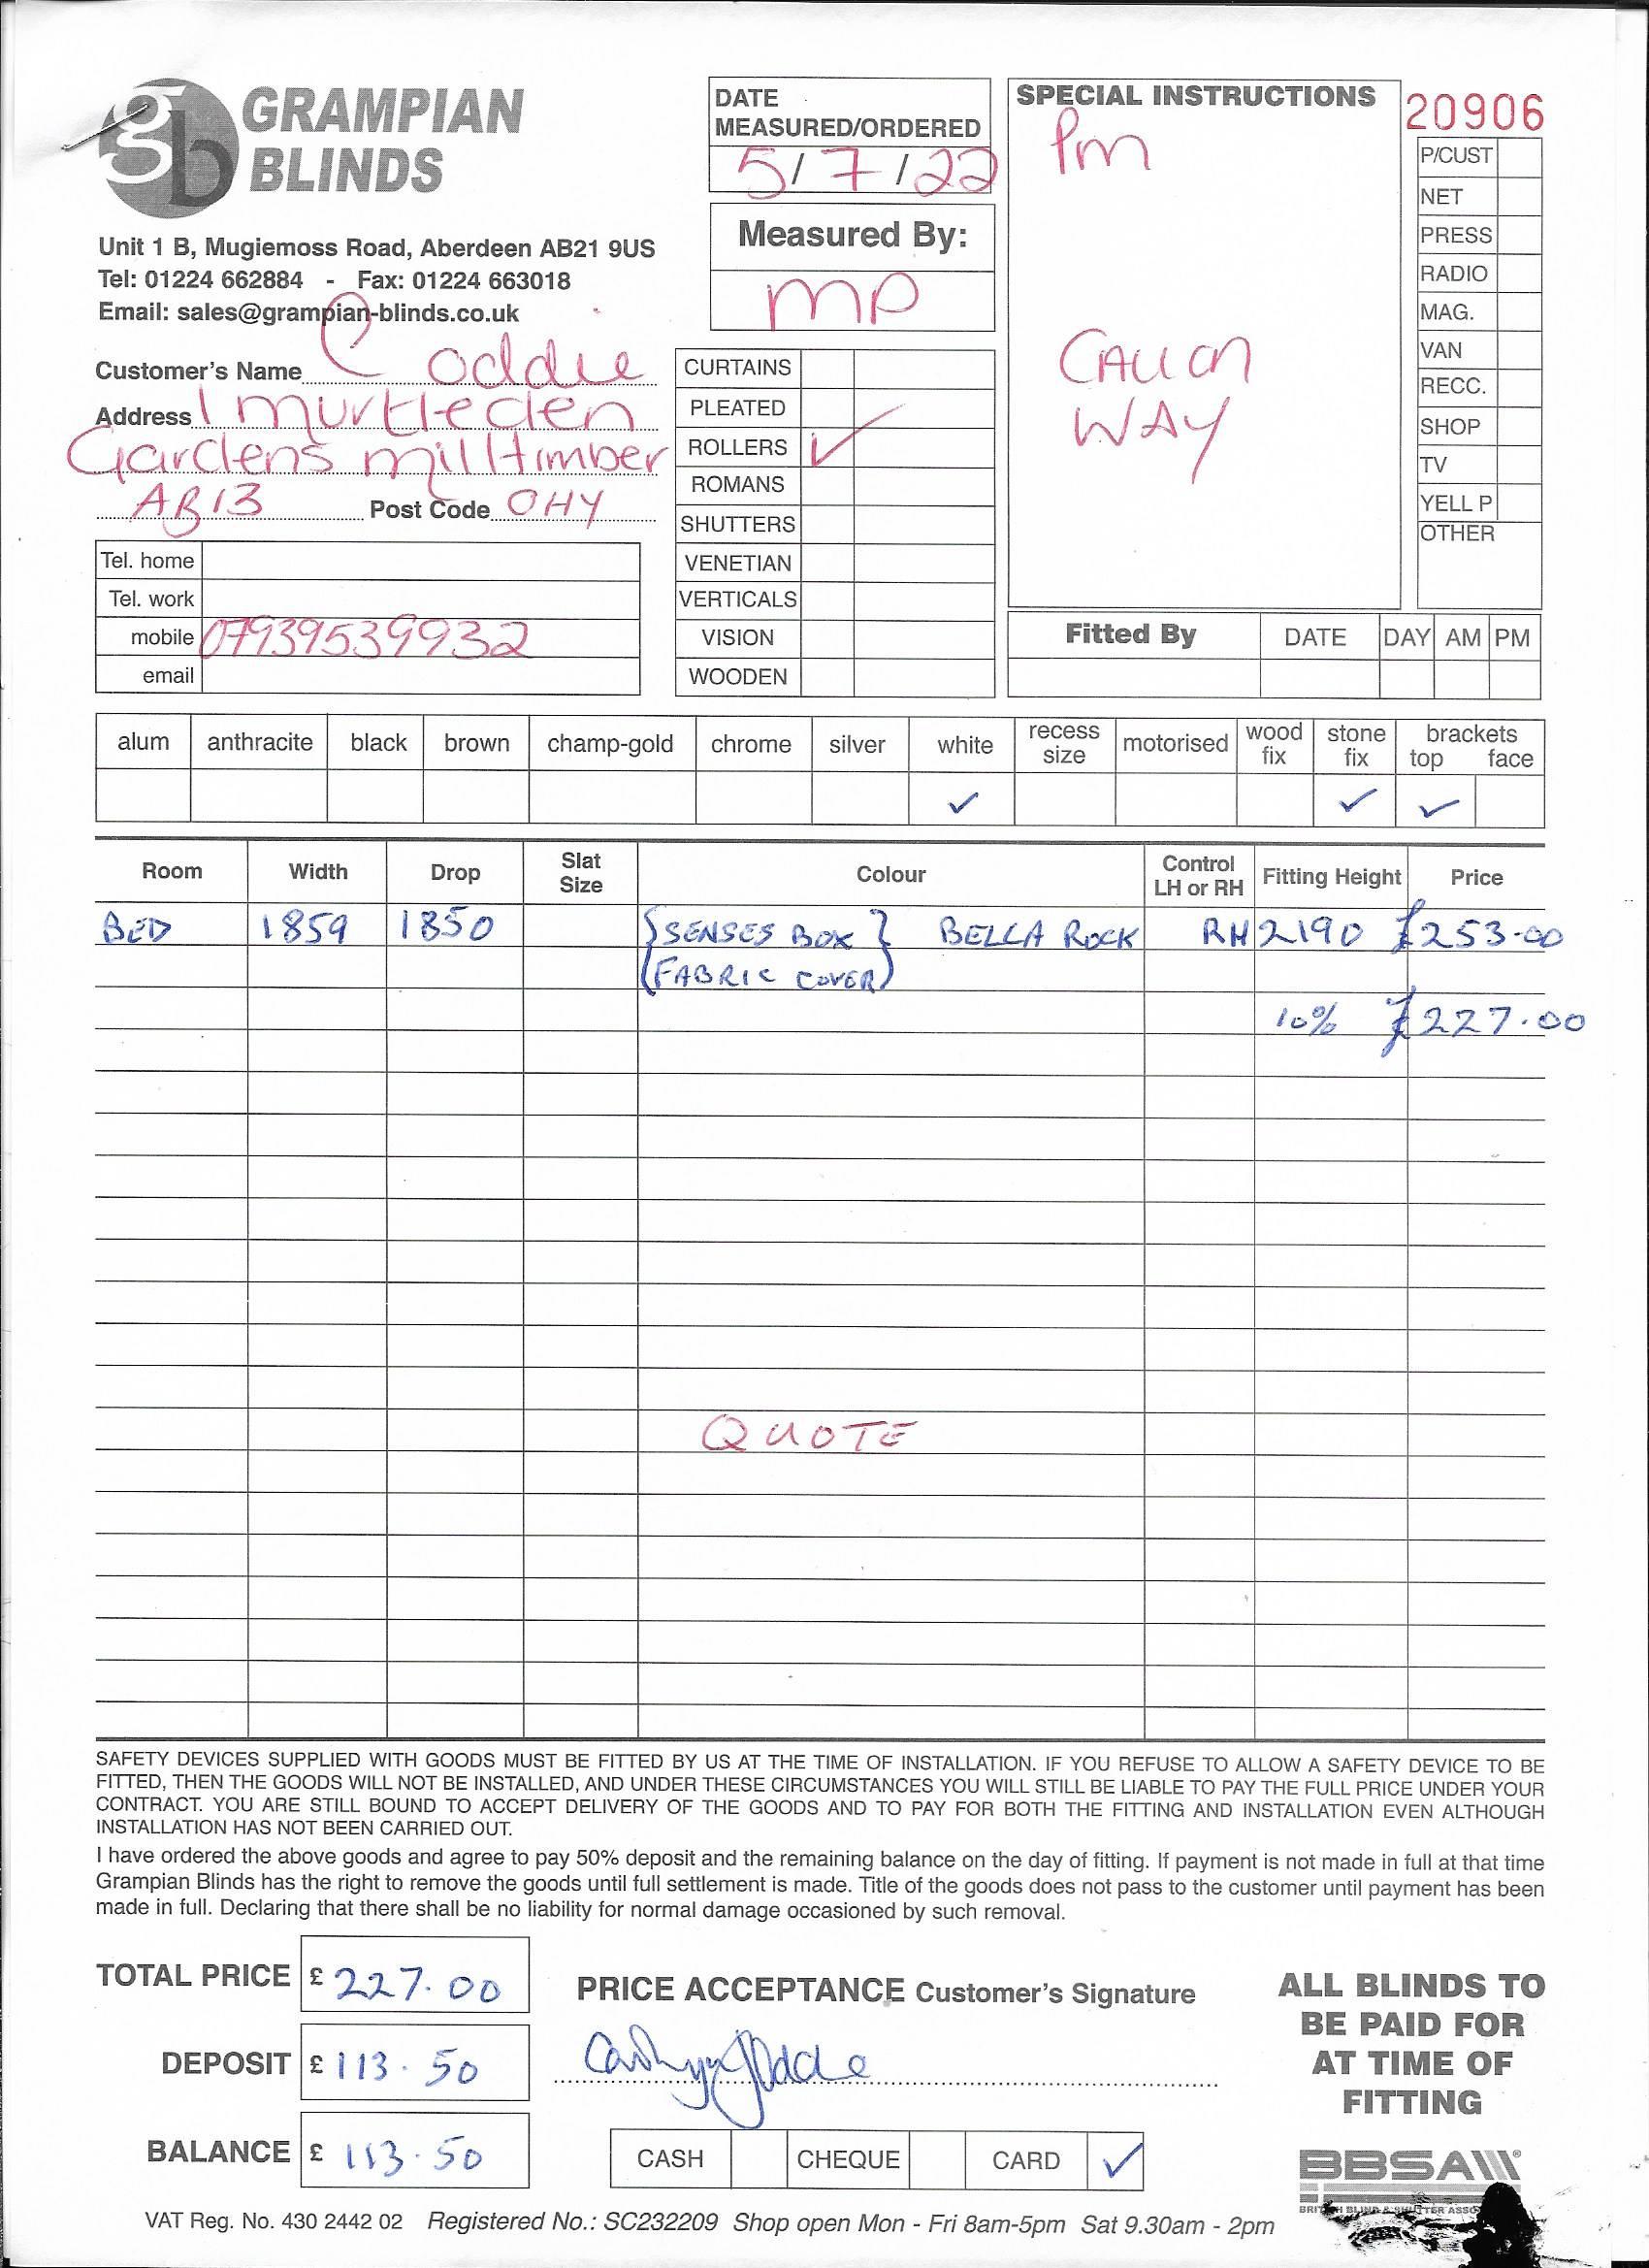 GRAMPIAN
BLINDS
Unit 1 B, Mugiemoss Road, Aberdeen AB21 9US
Tel: 01224 662884 - Fax: 01224 663018
Email: sales@grampian-blinds.co.uk
Customer's Name C Oddie
Address 1 murtleden
Gardens milltimber
AB13 Post Code 0HY
Tel. home
Tel. work
mobile 07939539932
email
DATE
MEASURED/ORDERED
5/7/22
Measured By:
MP
CURTAINS
PLEATED
ROLLERS ✓
ROMANS
SHUTTERS
VENETIAN
VERTICALS
VISION
WOODEN
SPECIAL INSTRUCTIONS
Pm
CALL ON
WAY
20906
P/CUST
NET
PRESS
RADIO
MAG.
VAN
RECC.
SHOP
TV
YELL P
OTHER
Fitted By DATE DAY AM PM
alum anthracite black brown champ-gold chrome silver white recess size motorised wood fix stone fix brackets top face
✓ ✓ ✓
Room Width Drop Slat Size Colour Control LH or RH Fitting Height Price
BED 1859 1850 {SENSES BOX} BELLA ROCK RH 2190 £253-00
(FABRIC COVER)
10% £227.00
QUOTE
SAFETY DEVICES SUPPLIED WITH GOODS MUST BE FITTED BY US AT THE TIME OF INSTALLATION. IF YOU REFUSE TO ALLOW A SAFETY DEVICE TO BE
FITTED, THEN THE GOODS WILL NOT BE INSTALLED, AND UNDER THESE CIRCUMSTANCES YOU WILL STILL BE LIABLE TO PAY THE FULL PRICE UNDER YOUR
CONTRACT. YOU ARE STILL BOUND TO ACCEPT DELIVERY OF THE GOODS AND TO PAY FOR BOTH THE FITTING AND INSTALLATION EVEN ALTHOUGH
INSTALLATION HAS NOT BEEN CARRIED OUT.
I have ordered the above goods and agree to pay 50% deposit and the remaining balance on the day of fitting. If payment is not made in full at that time
Grampian Blinds has the right to remove the goods until full settlement is made. Title of the goods does not pass to the customer until payment has been
made in full. Declaring that there shall be no liability for normal damage occasioned by such removal.
TOTAL PRICE £ 227.00
DEPOSIT £ 113.50
BALANCE £ 113.50
PRICE ACCEPTANCE Customer's Signature
CASH CHEQUE CARD ✓
ALL BLINDS TO
BE PAID FOR
AT TIME OF
FITTING
BBSA
VAT Reg. No. 430 2442 02 Registered No.: SC232209 Shop open Mon - Fri 8am-5pm Sat 9.30am - 2pm